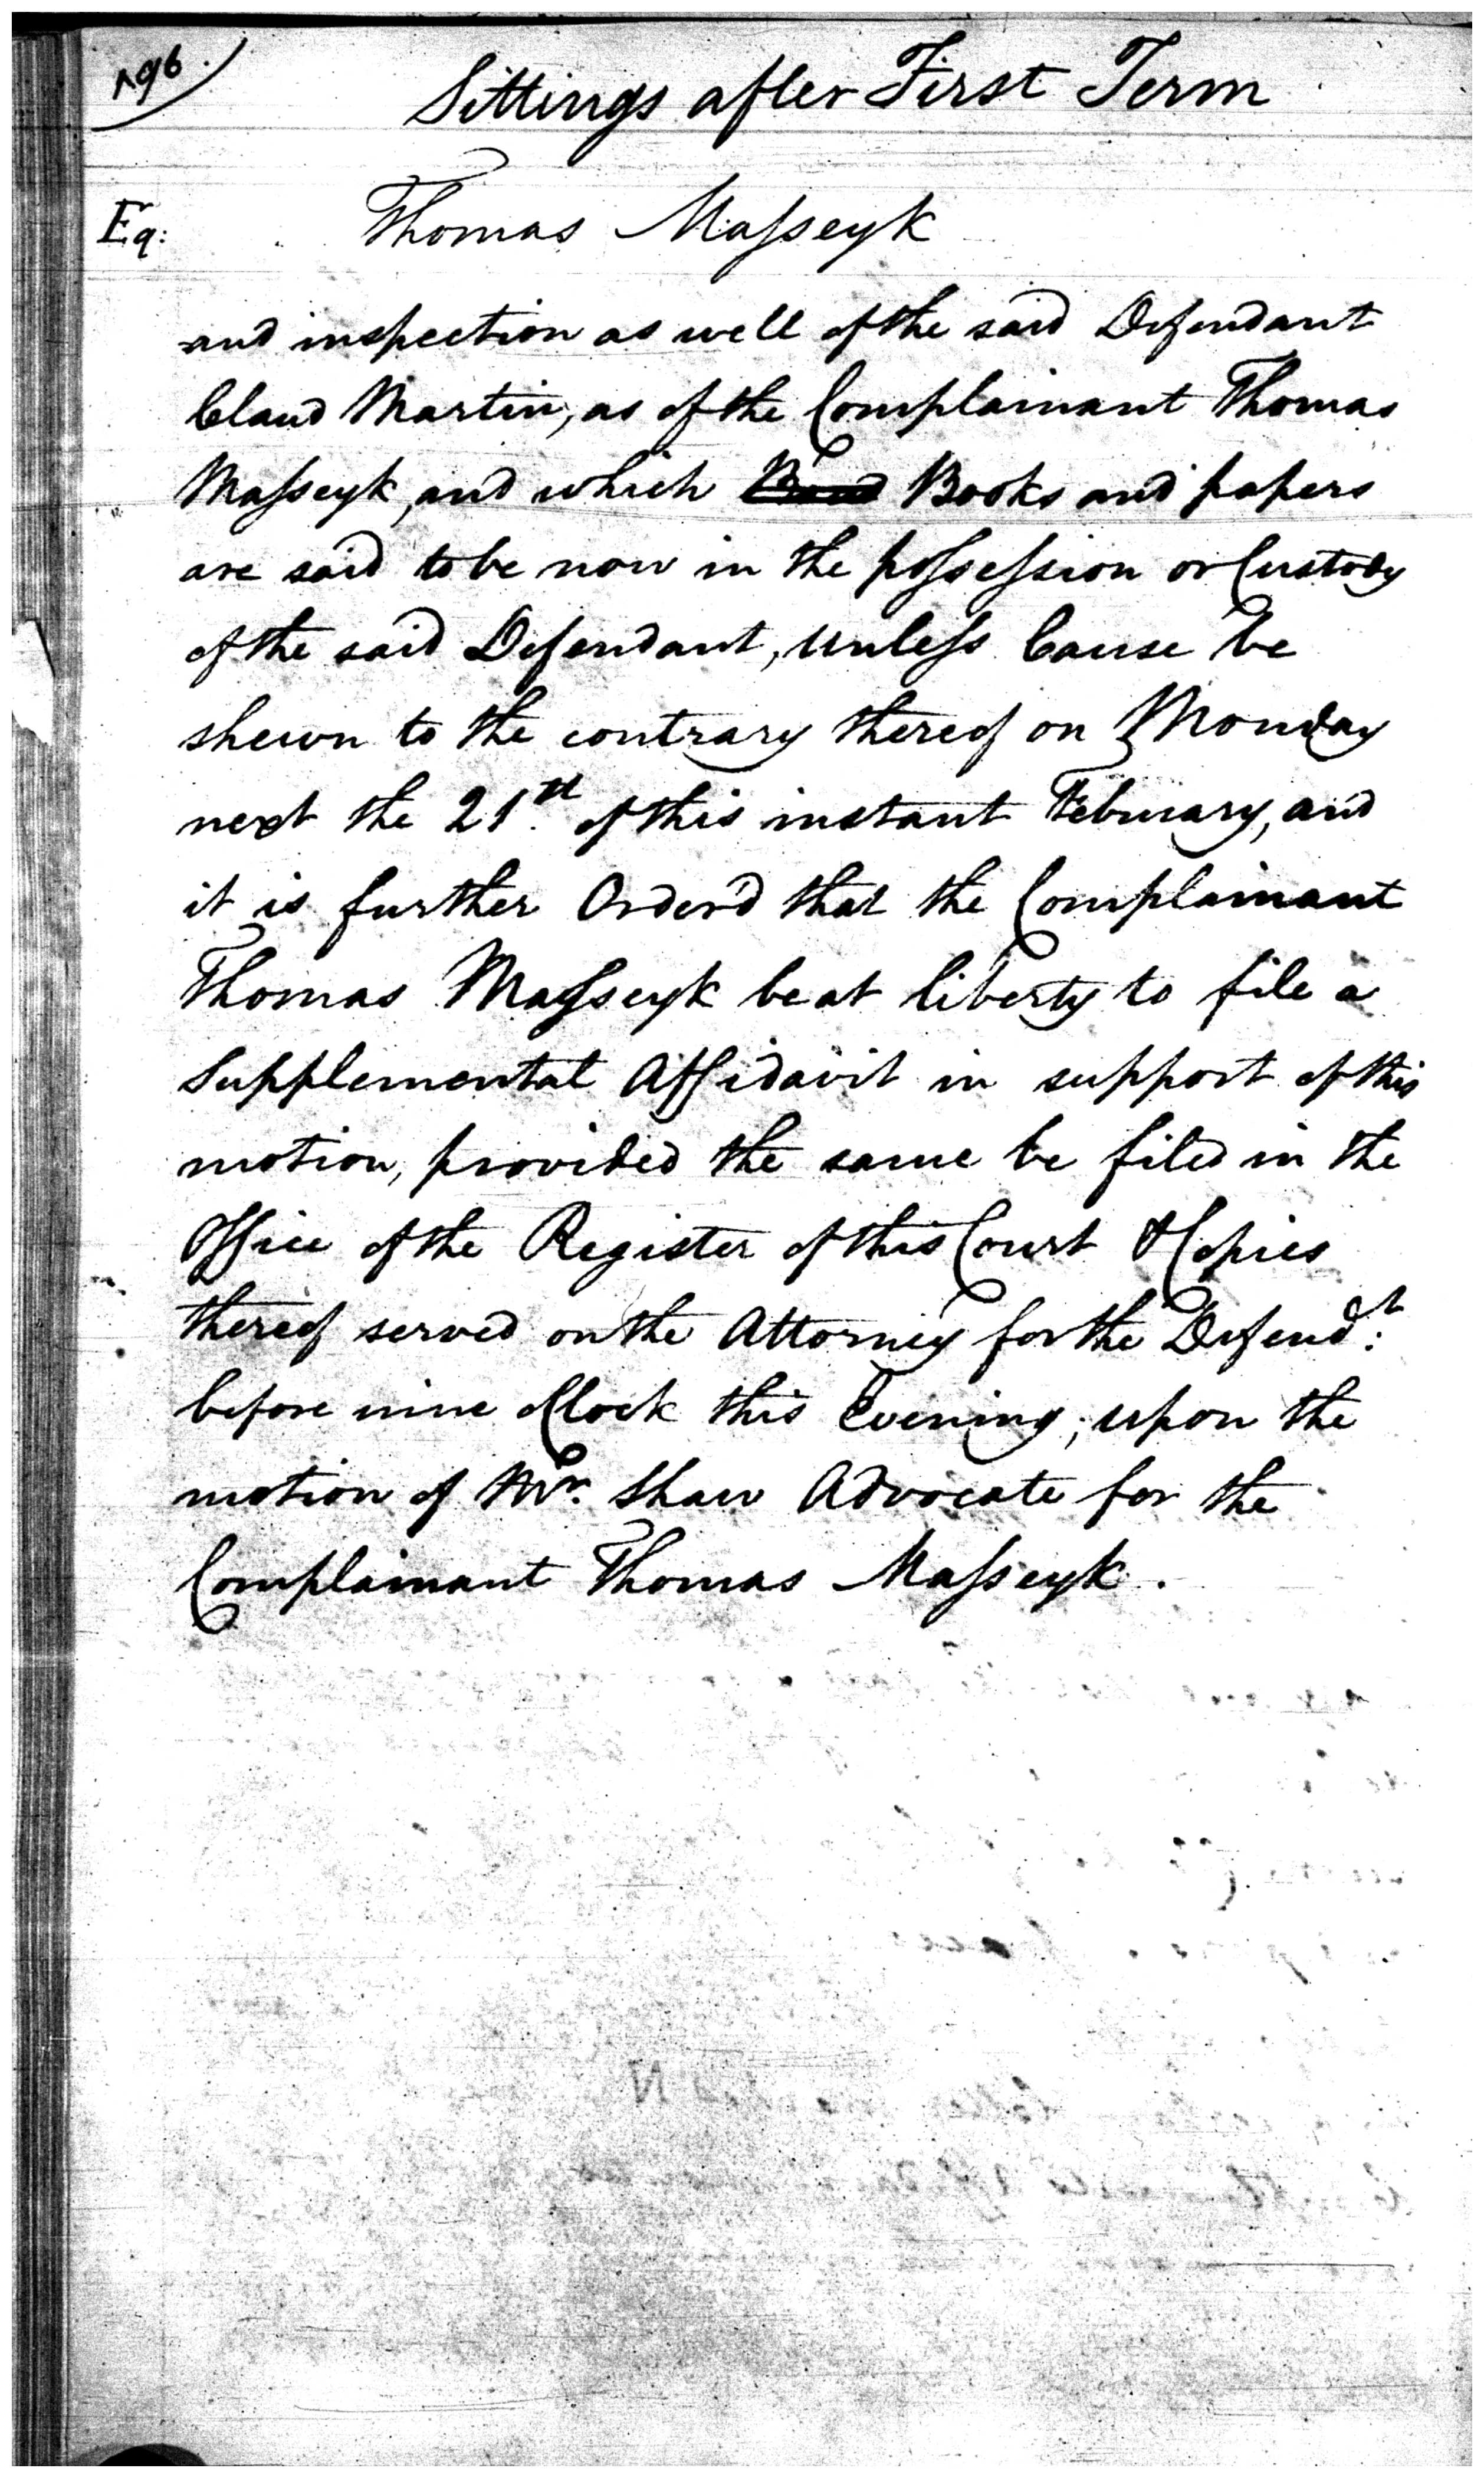 196.
Sittings after First Term
Eq: Thomas Maſseyk
and inspection as well of the said Defendant
Claud Martin, as of the Complainant Thomas
Maſseyk, and which Books and papers
are said to be now in the poſseſsion or Custody
of the said Defendant, unleſs Cause be
shewn to the contrary thereof on Monday
next the 21st. of this instant February, and
it is further Order'd that the Complainant
Thomas Maſseyk be at liberty to file a
Supplemental Affidavit in support of this
motion, provided the same be filed in the
Office of the Register of this Court & Copies
thereof served on the Attorney for the Defendt:
before nine oClock this Evening; upon the
motion of Mr. Shaw Advocate for the
Complainant Thomas Maſseyk.